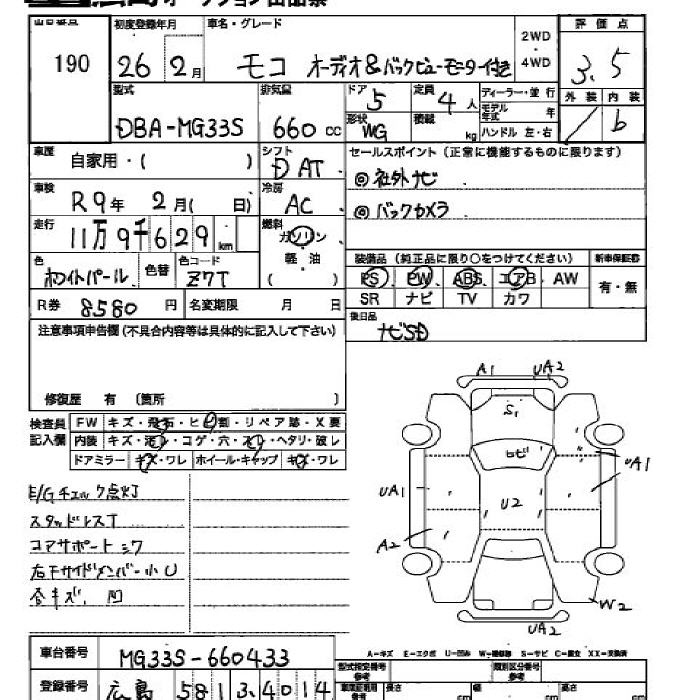 オークション出品票
出品番号 初度登録年月 車名・グレード 2WD・4WD 評価点
190 26年 2月 モコ オーディオ&バックビューモニター付き 3.5
型式 排気量 ドア 5 定員 4人 ディーラー・並行 外装 内装
DBA-MG33S 660cc 形状 WG 積載 kg モデル年式 年 ハンドル 左・右 b
車歴 自家用・( ) シフト DAT セールスポイント (正常に機能するものに限ります)
車検 R9年 2月( 日) 冷房 AC ◎社外ナビ
◎バックカメラ
走行 11万9千629km 燃料 ガソリン・軽油 ( )
色 ホワイトパール 色替 色コード Z7T
装備品 (純正品に限り○をつけてください) 新車保証書
PS PW ABS エアB AW 有・無
SR ナビ TV カワ
R券 8580円 名変期限 月 日
後日品 ナビSD
注意事項申告欄(不具合内容等は具体的に記入して下さい)
修復歴 有 〔箇所
検査員記入欄 FW キズ・飛石・ヒビ割・リペア跡・X要
内装 キズ・汚レ・コゲ・穴・スレ・ヘタリ・破レ
ドアミラー キズ・ワレ ホイール・キャップ キズ・ワレ
E/Gチェック点灯
スタッドレスT
コアサポートミワ
右下サイドメンバー小U
全キズ、凹
A1 UA2
S1
セビ
UA1 U2 UA1
A2
W2
UA2
A-キズ E-エクボ U-凹み W-補修跡 S-サビ C-腐食 XX-交換済
車台番号 MG33S-660433
型式指定番号 参考 類別区分番号 参考
登録番号 広島 581 ろ 4014
車庫証明用 参考 長さ cm 幅 cm 高さ cm